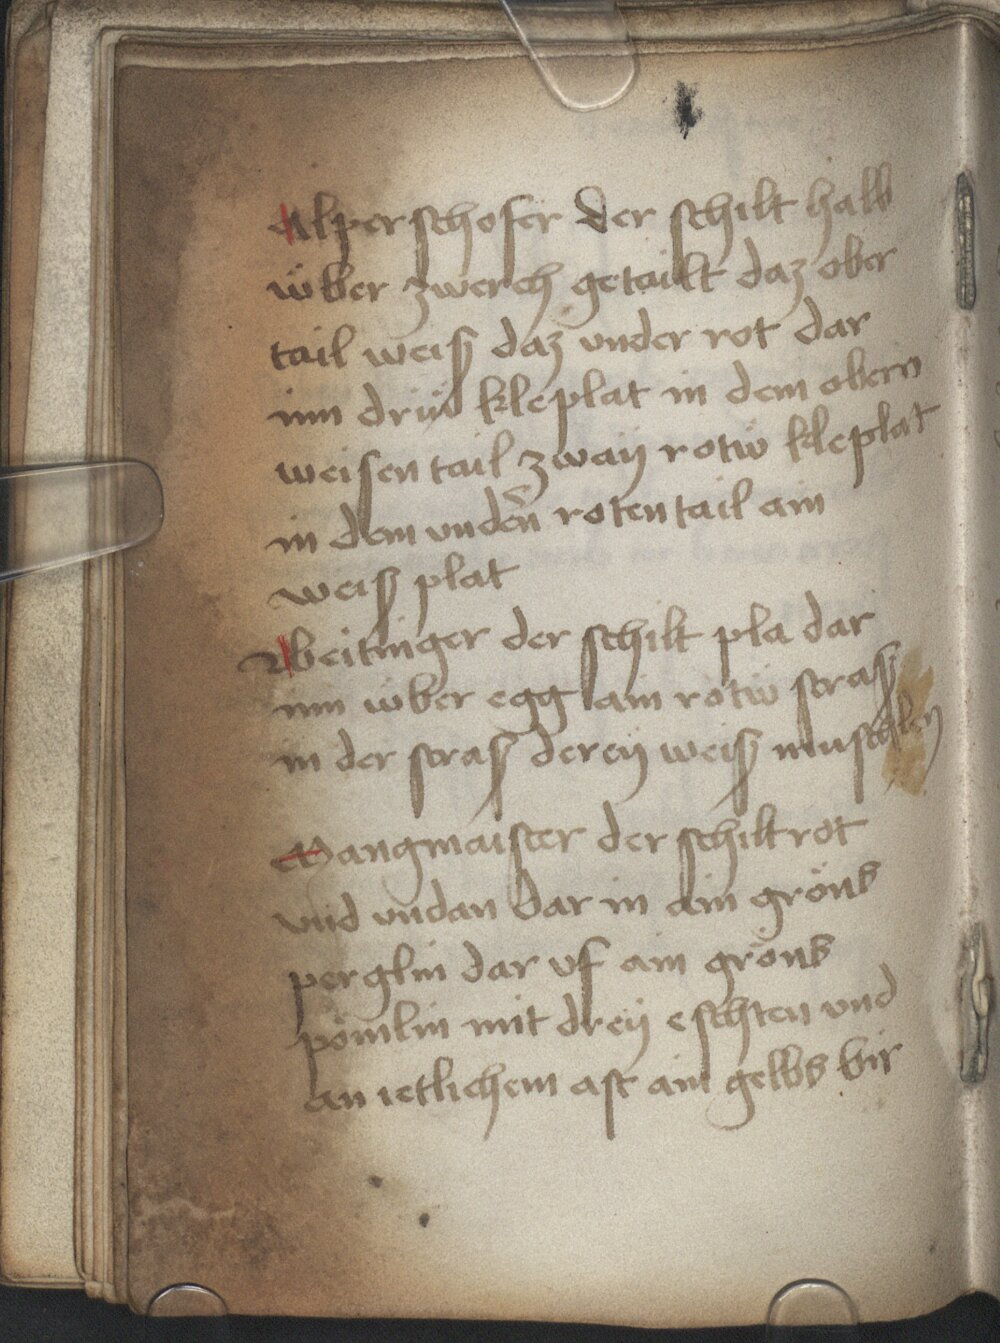 Alperschofer Der schilt halb
ẅber zwerch getailt daz ober
tail weiß daz vnder rot dar
inn drüw kleplat in dem obern
weisen tail zwaÿ rotiw kleplat
in dem vndern roten tail ain
weiß plat
Weitinger der schilt pla dar
inn ẅber egg ain rotiw straß
in der straß dereÿ weiß muschlen
Mangmaister der schilt rot
vnd vndan dar in ain grönß
perglin dar vf ain grönß
pömlin mit dreÿ eschten vnd
an ietlichem ast ain gelbß bir